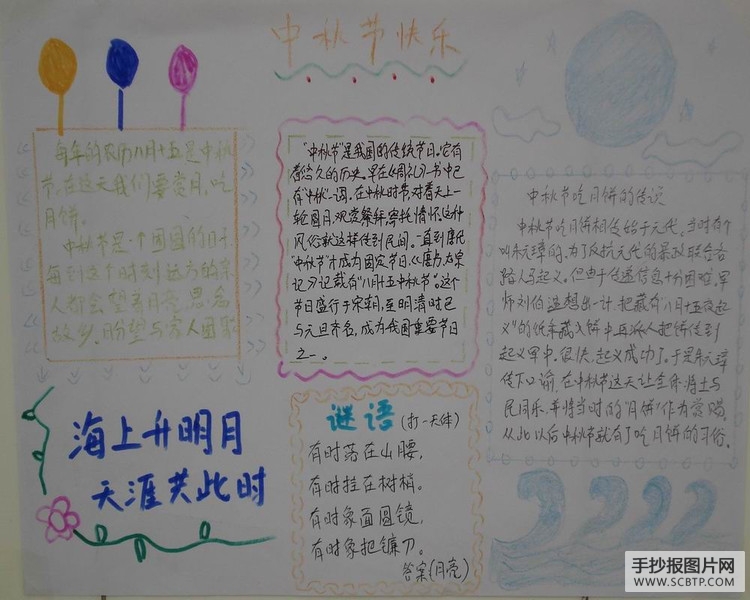 中秋节快乐
每年的农历八月十五是中秋
节。在这天我们要赏月,吃
月饼。
中秋节是一个团圆的日子,
每到这个时刻远方的亲
人都会望着月亮,思念
故乡。盼望与家人团聚
"中秋节"是我国的传统节日。它有
着悠久的历史。早在《周礼》一书中已
有"中秋"一词。在中秋时节,对着天上一
轮圆月,观赏祭拜寄托情怀,这种
风俗就这样传到民间。一直到唐代
"中秋节"才成为固定节日。《唐书太宗
记》记载有"八月十五中秋节"。这个
节日盛行于宋朝,至明清时已
与元旦齐名,成为我国重要节日
之一。
中秋节吃月饼的传说
中秋节吃月饼相传始于元代。当时有个
叫朱元璋的,为了反抗元代的暴政联合各
路人马起义。但由于传递信息十分困难。军
师刘伯温想出一计,把藏有"八月十五夜起
义"的纸条藏入饼中再派人把饼传到
起义军中。很快,起义成功了。于是朱元璋
传下口谕,在中秋节这天让全体将士与
民同乐。并将当时的"月饼"作为赏赐。
从此以后中秋节就有了吃月饼的习俗。
海上升明月
天涯共此时
谜语(打一天体)
有时落在山腰,
有时挂在树梢。
有时象面圆镜,
有时象把镰刀。
答案(月亮)
手抄报图片网
WWW.SCBTP.COM